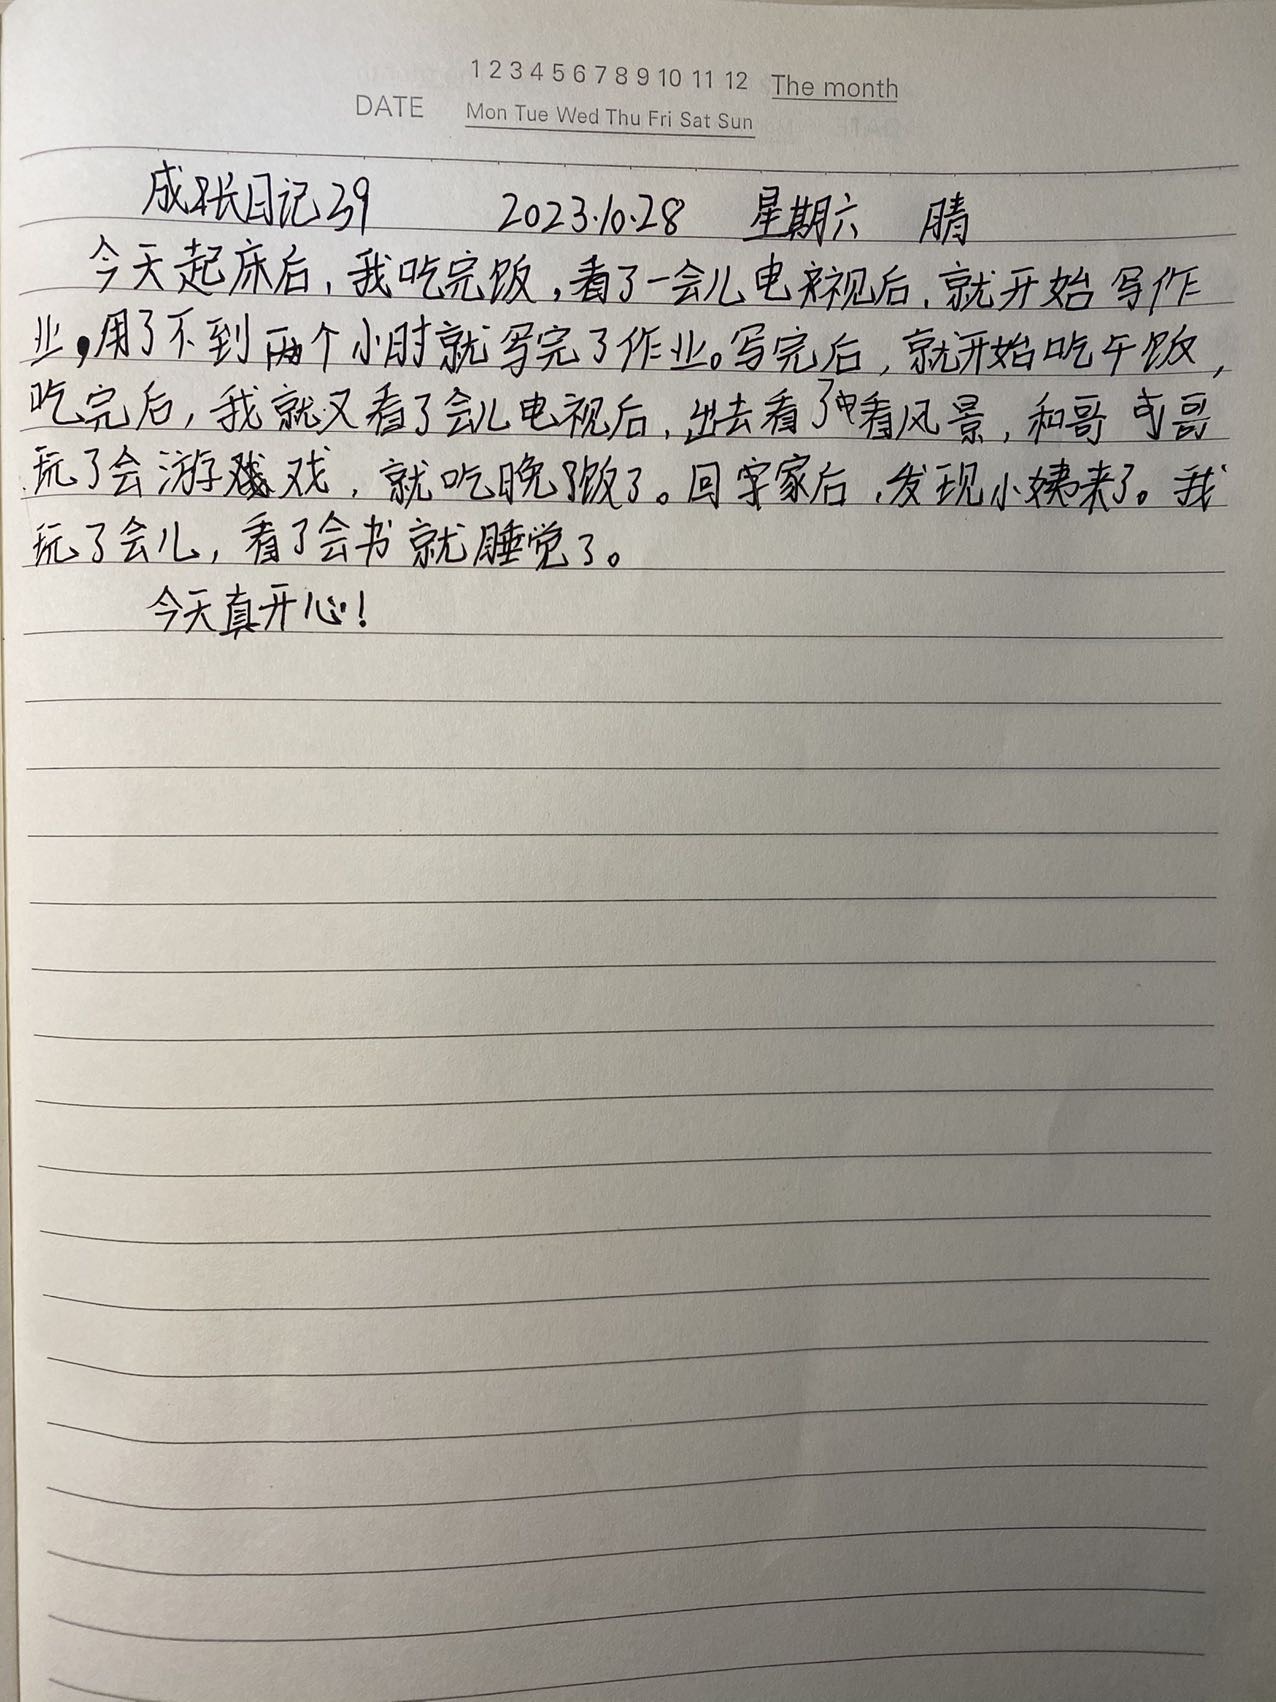 1 2 3 4 5 6 7 8 9 10 11 12 The month
DATE Mon Tue Wed Thu Fri Sat Sun
成长日记39 2023.10.28 星期六 晴
今天起床后，我吃完饭，看了一会儿电视后，就开始写作
业，用了不到两个小时就写完了作业。写完后，就开始吃午饭，
吃完后，我就又看了会儿电视后，出去看了看风景，和哥哥
玩了会游戏，就吃晚饭了。回家后，发现小姨来了。我
玩了会儿，看了会书就睡觉了。
今天真开心！